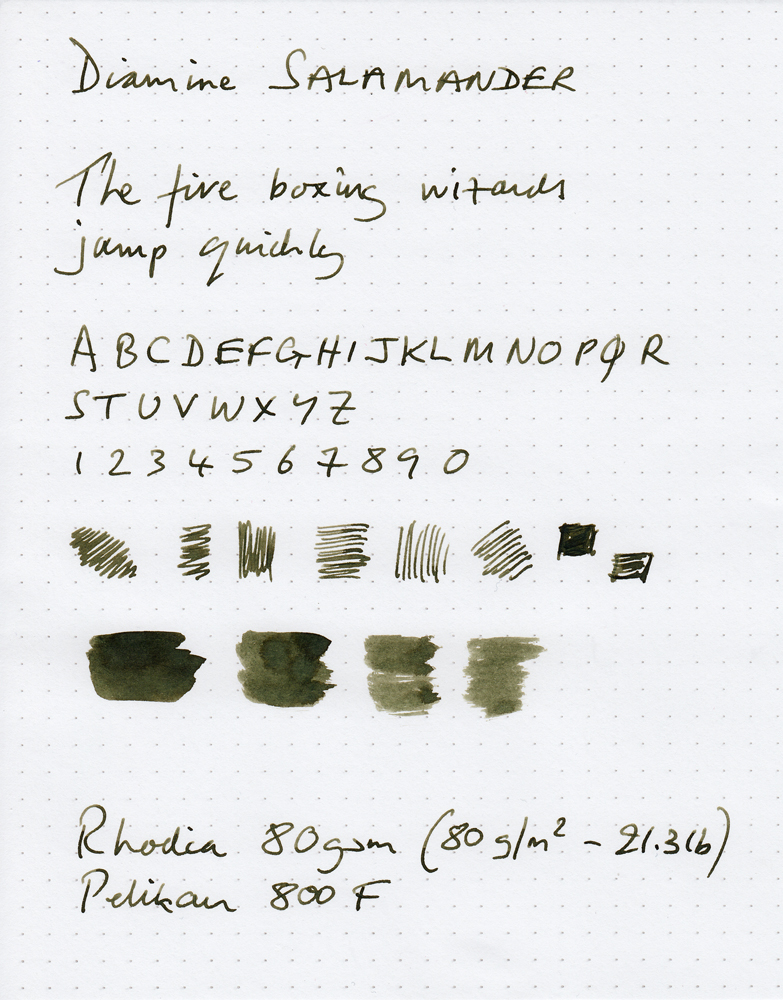 Diamine SALAMANDER
The five boxing wizards
jump quickly
A B C D E F G H I J K L M N O P Q R
S T U V W X Y Z
1 2 3 4 5 6 7 8 9 0
Rhodia 80gsm (80 g/m² - 21.3lb)
Pelikan 800 F